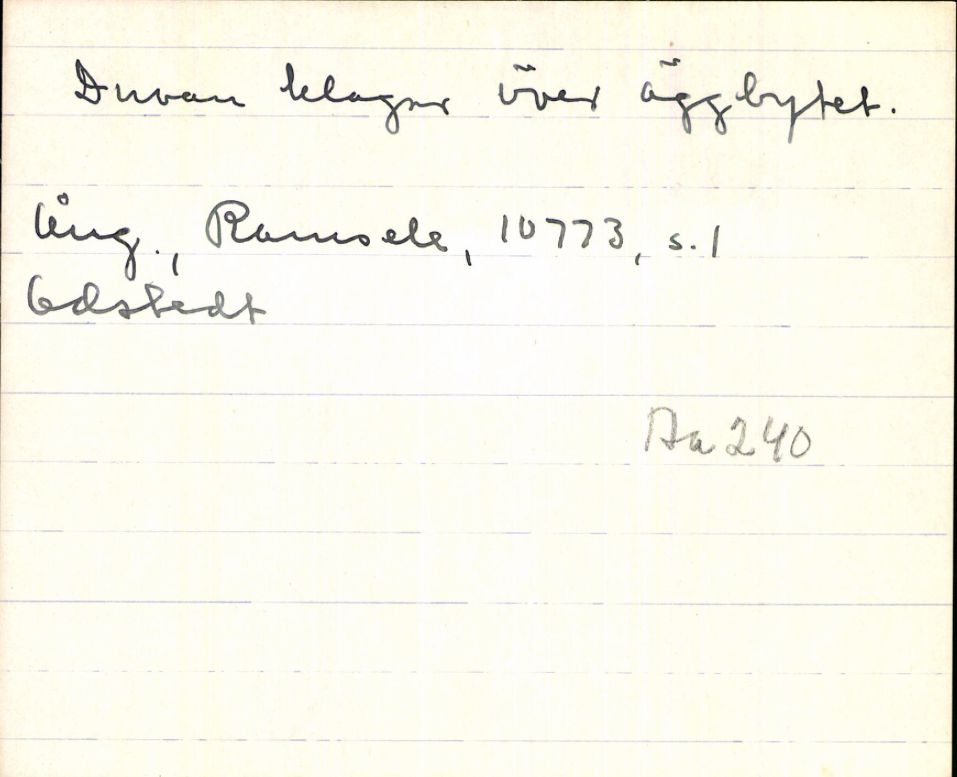 Duvan klagar över äggbytet.
Ång., Ramsele, 10773, s. 1
Edstedt
Aa 240